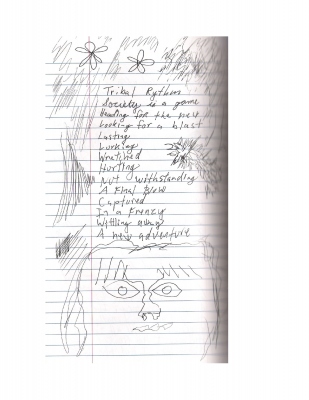 Trikal Rythm
Society is a game
Heading for the past
Looking for a blast
Lasting
Lurking
Hurting
Not withstanding
A Final Blow
Captured
In a Frenzy
Wittling away
A new adventure